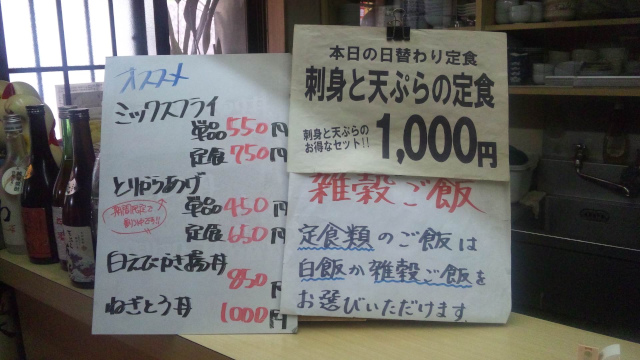 オススメ
ミックスフライ
単品 550円
定食 750円
とりからあげ
単品 450円
定食 650円
白えびかき揚丼
850円
ねぎとろ丼 1000円
本日の日替わり定食
刺身と天ぷらの定食
刺身と天ぷらの
お得なセット!!
1,000円
雑穀ご飯
定食類のご飯は
白飯か雑穀ご飯を
お選びいただけます